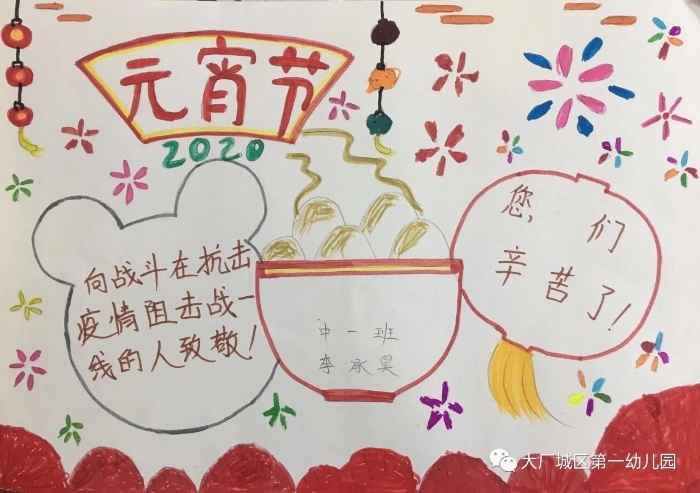 元宵节
2020
向战斗在抗击
疫情阻击战一
线的人致敬!
中一班
李承昊
您们
辛苦了!
大厂城区第一幼儿园